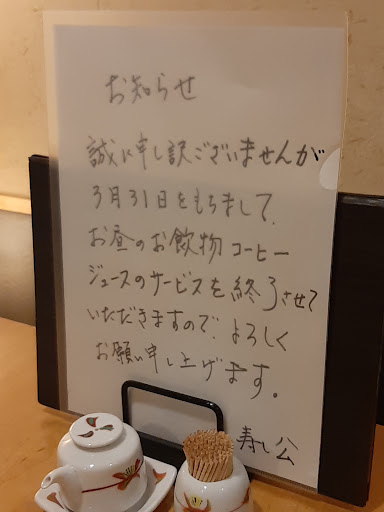 お知らせ
誠に申し訳ございませんが
3月31日をもちまして、
お昼のお飲物コーヒー
ジュースのサービスを終了させて
いただきますので、よろしく
お願い申し上げます。
寿し公